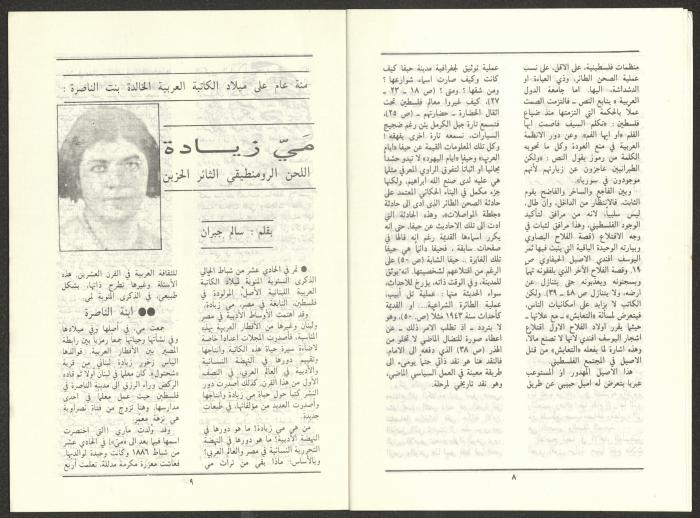 منظمات فلسطينية، على الاقل، على نسب
عملية الصحن الطائر، وذي العباءة او
الدشداشة، اليها. اما جامعة الدول
العربية ويتابع النص ـ فالتزمت الصمت
عملًا بالحكمة التي التزمتها منذ ضياع
فلسطين: «تكلم السيف فاصمت ايها
الفم» او ايها القم. وعن دور الانظمة
العربية في منع العودة وكل ما تحويه
الكلمة من رموز يقول النص: «ولكن
الطبرانيين عاجزون عن زيارتهم لأنهم
موجودون في سوريا».
وبين الفاجع والساخر والفاضح يقوم
الثابت. فالانتظار من الداخل، وان طال،
ليس سلبيا، لانه من مرافق لتأكيد
الوجود الفلسطيني، وهذا مرافق لثبات في
وجه الاقتلاع (قصة الفلاح البصاوي
وبيارته الوحيدة الباقية التي
اليوسف افندي الاصيل الحيفاوي ص
١٩. وقصة الفلاح الآخر الذي يلفقون له تهما
ويسجنونه ويعذبونه حتى يتنازل عن
ارضه، ولا يتنازل ص ٤٨ ـ ٣٩). ولكن
الكاتب لا يزايد على امكانيات الناس،
فيتعرض لمسألة «التعايش» ـ مع علاتها ـ
حيثما يقرر اولاد الفلاح الاول اقتلاع
اشجار اليوسف افندي لأنها لا تصنع مالا.
وهذه اشارة لما يفعله «التعايش» من قتل
الاصيل في المجتمع الفلسطيني.
هذا الاصيل المهدور او المستوعب
عبريا يتعرض له اميل حبيبي عن طريق
عملية توثيق لجغرافية مدينة حيفا كيف
كانت وكيف صارت اسماء شوارعها؟
ومن شقها؟ ومتى؟ (ص ١٨ ـ ٢٣ ـ
٢٧)، كيف غيروا معالم فلسطين تحت
اثقال الحضارة ـ حضارتهم ـ (ص ٢٥)،
فنسمع تارة جبل الكرمل يئن رغم ضجيج
السيارات، نسمعه تارة اخرى يقهقه!
وكل تلك المعلومات القيمة عن حيفا «ايام
العرب» وحيفا «ايام اليهود» لا تبدو حشدًا
مجانيا او اثباتًا لتفوق الراوي المعرفي مثلما
هي عليه لدى صنع الله ابراهيم، ولكنها
جزء مكمل في البناء الحكائي المعتمد على
حادثة الصحن الطائر الذي ادى الى حادثة
«جلطة المواصلات». وهذه الحادثة التي
ادت الى تلك الاحاديث عن حيفا. حتى إنه
يكرر اسماءها القديمة رغم إنه قالها في
صفحات سابقة، فحيفا دائما هي حيفا
تلك الغابرة .. حيفا الشابة (ص ٥٠) على
الرغم من اقتلاعهم لشخصيتها. انه يوثق
للمدينة، وفي الوقت ذاته، يؤرخ للاحداث،
سواء الحديثة منها: عملية تل ابيب،
عملية الطائرة الشراعية... او القديمة
كأحداث سنة ١٩٤٣ مثلا (ص ٥٠)، وهو
لا يتردد ـ اذ تطلب الامر ذلك ـ عن
اعطاء صورة للنضال الماضي لا تخلو من
الهذر (ص ٣٨) الذي دفعه الى الامام.
فالنقد هنا هو نقد ذاتي حتما يومي، الى
طريقة معينة في العمل السياسي الماضي،
وهو نقد تاريخي لمرحلة.
٨
مئة عام على ميلاد الكاتبة العربية الخالدة بنت الناصرة:
مَيّ زيــادة
اللحن الرومنطيقي الثائر الحزين
بقلم: سالم جبران
● تمر في الحادي عشر من شباط الحالي
الذكرى السنوية المئوية لميلاد الكاتبة
العربية اللبنانية الاصل، المولودة في
فلسطين، النابغة في مصر، مي زيادة.
وقد اهتمت الاوساط الأدبية في مصر
ولبنان وغيرها من الأقطار العربية بهذه
المناسبة، فأصدرت المجلات أعدادا خاصة
لاضاءة سيرة حياة هذه الكاتبة وانتاجها
وتقييم دورها في النهضة النسائية
والأدبية في العالم العربي، في النصف
الأول من هذا القرن. كذلك أصدرت دور
النشر كتبا حول حياة مي زيادة وانتاجها
وأصدرت العديد من مؤلفاتها، في طبعات
جديدة.
من هي مي زيادة؟ ما هو دورها في
النهضة الأدبية؟ ما هو دورها في النهضة
التحررية النسائية في مصر والعالم العربي؟
وبالأساس: ماذا بقي من تراث مي
للثقافة العربية في القرن العشرين. هذه
الأسئلة وغيرها تطرح ذاتها، بشكل
طبيعي، في الذكرى المئوية لمي.
●● ابنة الناصرة
جمعت مي، في أصلها وفي ميلادها
وفي نشأتها وحياتها جمعًا رمزيا بين رابطة
المصير بين الأقطار العربية: فوالدها
الياس زخور زيادة لبناني من قرية
«شحتول»، كان معلما في لبنان أولا ثم قاده
الركض وراء الرزق إلى مدينة الناصرة في
فلسطين حيث عمل معلما في احدى
مدارسها، وهنا تزوج من فتاة نصراوية
هي نزهة معمر.
وقد ولدت ماري (التي اختصرت
اسمها فيما بعد الى «مي») في الحادي عشر
من شباط ١٨٨٦ وكانت وحيدة لوالديها.
فعاشت معززة مكرمة مدللة. تعلمت أربع
٩